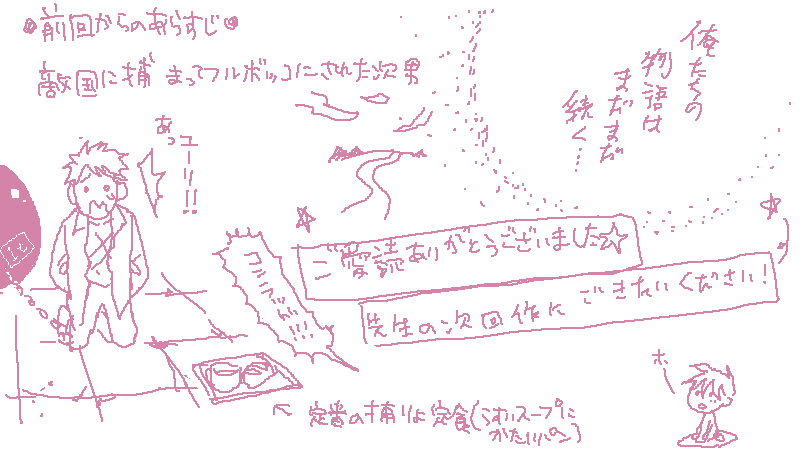 前回からのあらすじ
敵国に捕まってフルボッコにされた次男
俺たちの
物語は
まだまだ
続く…
あっ
ユーリ!!
1t
コンフッ!!!
ご愛読ありがとうございました☆
先生の次回作にごきたいください!
ホ
← 定番の捕りょ定食(うすいスープに
かたいパン)